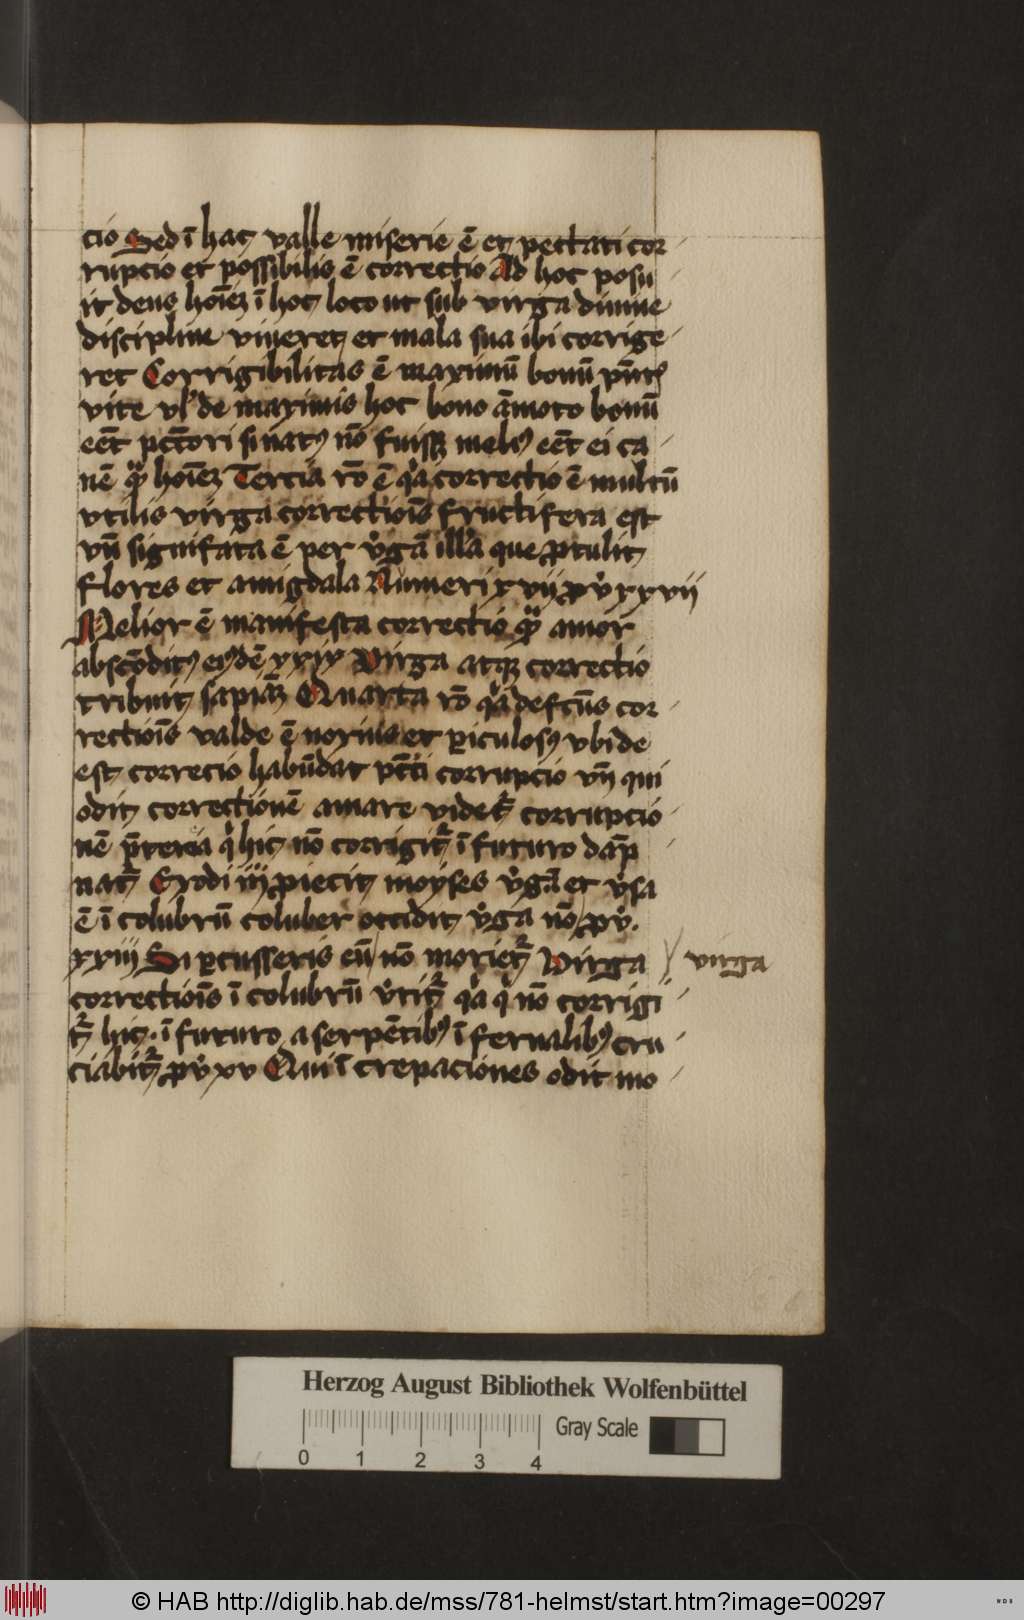 cio Sed ī hac valle miserie ē et peccati cor
rupcio et possibilis ē correctio Ad hoc posu
it deus hoīeʒ ī hoc loco ut sub virga diuine
discipline viueret et mala sua ibi corrige
ret Corrigibilitas ē maximū bonū pn̄tꝭ
vite vl' de maximis hoc bono āmoto bonū
eēt pctōri si natꝰ nō fuissꝫ melꝰ eēt ei ca
nē qͣꝫ hoīeʒ Tercia rō ē qͥa correctio ē multū
vtilis virga correctiōis fructifera est
vn̄ signifata ē per v̓gā illā que ꝓtulit
flores et amigdala Numeri xvii ꝓv̓ xxvii
Melior ē manifesta correctio qͣꝫ amor
abscōditꝰ eiꝰdē xxix Virga atqꝫ correctio
tribuit sapiāꝫ Quarta rō qͥa defctūs cor
rectiōis valde ē noxius et ꝑiculosꝰ vbi de
est correcio habūdat pctī corrupcio vn̄ qui
odit correctionē amare videt᷑ corrupcio
nē p̄terea qͥ hic nō corrigit᷑ ī futuro dāp
nat᷑ Exodi iiij ꝓiecit moyses v̓gā et v̓sa
ē ī colubrū coluber occidit v̓ga nō ꝓv̓.
xxiii Si ꝑcusseris eū nō moriet᷑ Virga
virga
correctiōis ī colubrū v̓tit᷑ qͥa qͥ nō corrigi
t᷑ hic. ī futuro a serpētibꝰ īfernalibꝰ cru
ciabit᷑ ꝓv̓ xv Qui īcrepaciones odit mo
Herzog August Bibliothek Wolfenbüttel
Gray Scale
0 1 2 3 4
© HAB http://diglib.hab.de/mss/781-helmst/start.htm?image=00297